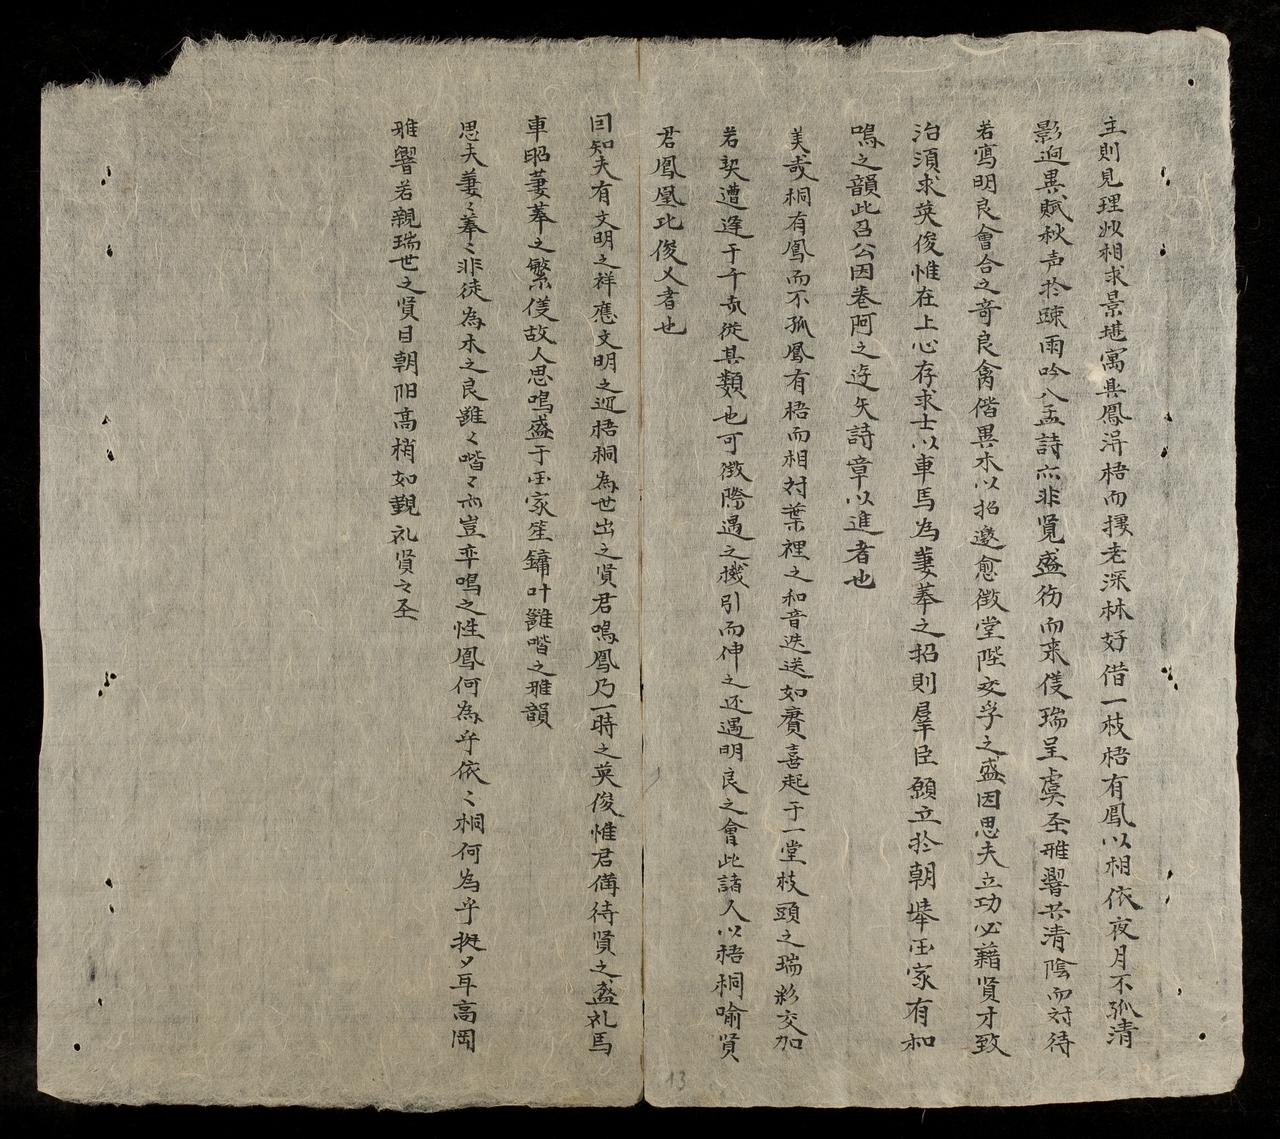 主則見理必相求景堪寓其鳳淂梧而摟老深林好借一枝梧有鳳以相依夜月不孤清
影逈異賦秋声於踈雨吟入孟詩亦非覓盛㣲而来儀瑞呈虞圣雅響共清陰而対待
若寫明良會合之竒良禽偕異木以招邀愈徴堂陛交孚之盛因思夫立功必藉賢才致
治須求英俊惟在上心存求士以車馬為萋菶之招則羣臣願立於朝埲囯家有和
鳴之韻此召公因巻阿之逰矢詩章以進者也
美㦲桐有鳳而不孤鳳有梧而相対葉裡之和音迭送如賡喜起于一堂枝頭之瑞彩交加
若契遭逢于千㦲從其類也可徴際遇之機引而伸之还遇明良之會此諸人以梧桐喻賢
君鳳凰比俊乂者也
囙知夫有文明之祥應文明之迎梧桐為世出之賢君鳴鳳乃一時之英俊惟君備待賢之盛礼馬
車昭萋菶之繁儀故人思鳴盛于囯家笙鏞叶雝喈之雅韻
思夫萋〻菶〻非徒為木之良雝〻喈〻亦豈弄鳴之性鳳何為乎依〻桐何為乎挺〻耳高岡
雅響若親瑞世之賢目朝阳高梢如覩礼賢之圣
13